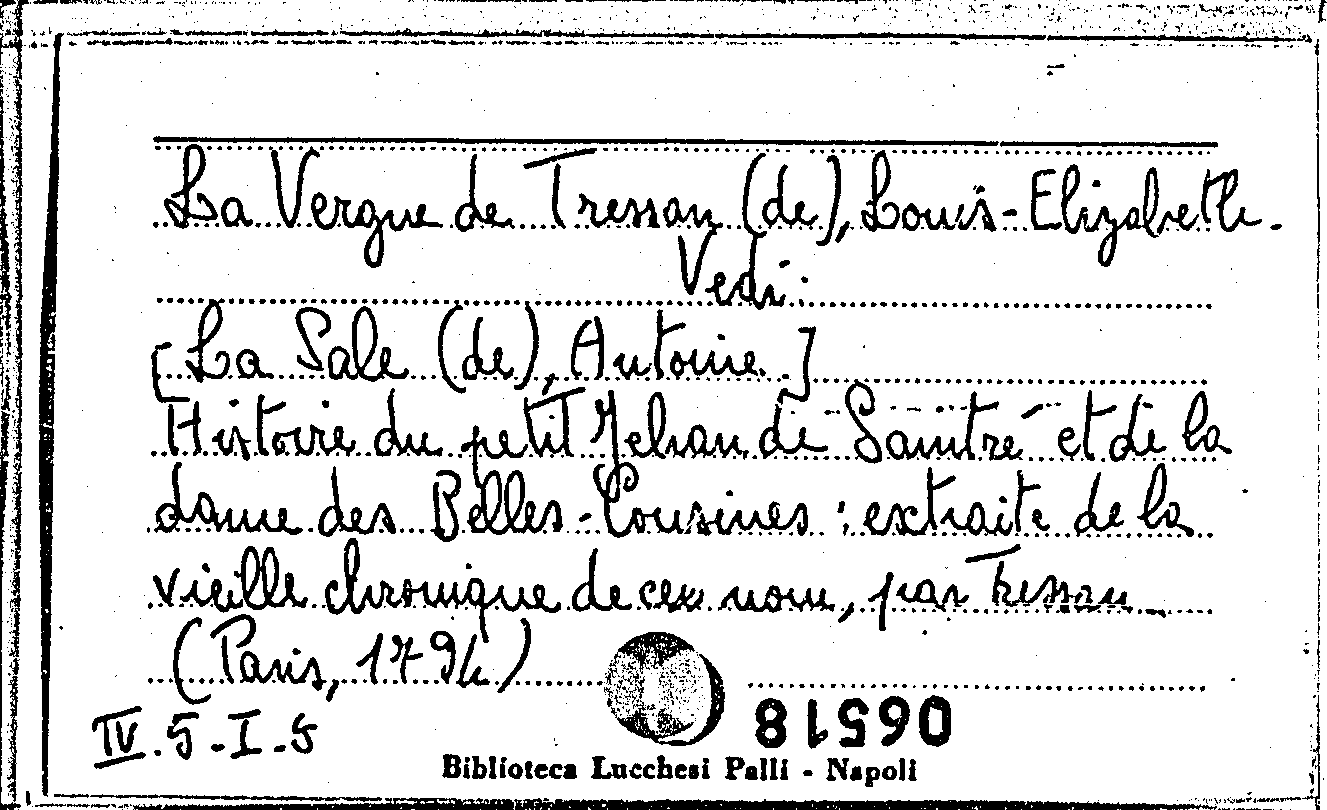 La Vergne de Tressan (de), Louis-Elizabeth.
Vedi:
[La Sale (de), Antoine.]
Histoire du petit Jehan de Saintré et de la
dame des Belles-Cousines : extraite de la
vieille chronique de cex nom, par Tressan
(Paris, 1794)
IV.5-I-5
06518
Biblioteca Lucchesi Palli - Napoli